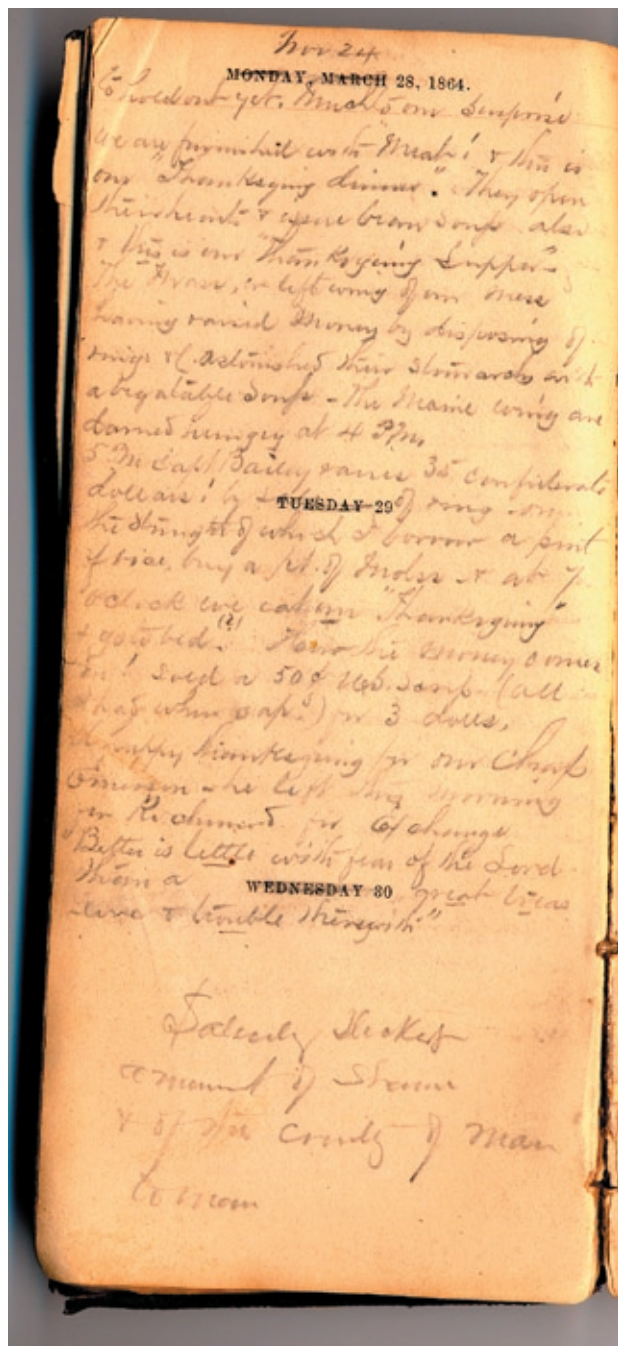 Nov 24
MONDAY, MARCH 28, 1864.
to hold out yet. Much to our surprise
we are furnished with "Meat"! & this is
our "Thanksgiving dinner". They open
their hearts & issue bean soup also
& this is our "Thanksgiving Supper"
The Mass, or left wing of our mess
having raised money by disposing of
rings &c astonished their stomachs with
a vegatable soup - The Maine wing are
darned hungry at 4 P.M.
5 P.M. Capt Bailey raises 35 confederate
dollars! by of ring on
TUESDAY 29
the strength of which I borrow a pint
of rice, buy a pt. of & at 7
oclock we eat our "Thanksgiving"
& go to bed. (?) How the money comes
in! Sold a 50¢ U.S. (all
) for 3 dolls.
A happy thanksgiving for our Chap
Emerson - he left this morning
for Richmond for Exchange
"Better is little with fear of the Lord
than a great treas
WEDNESDAY 30
ure & trouble therewith"
amount of
& of the of man
to man